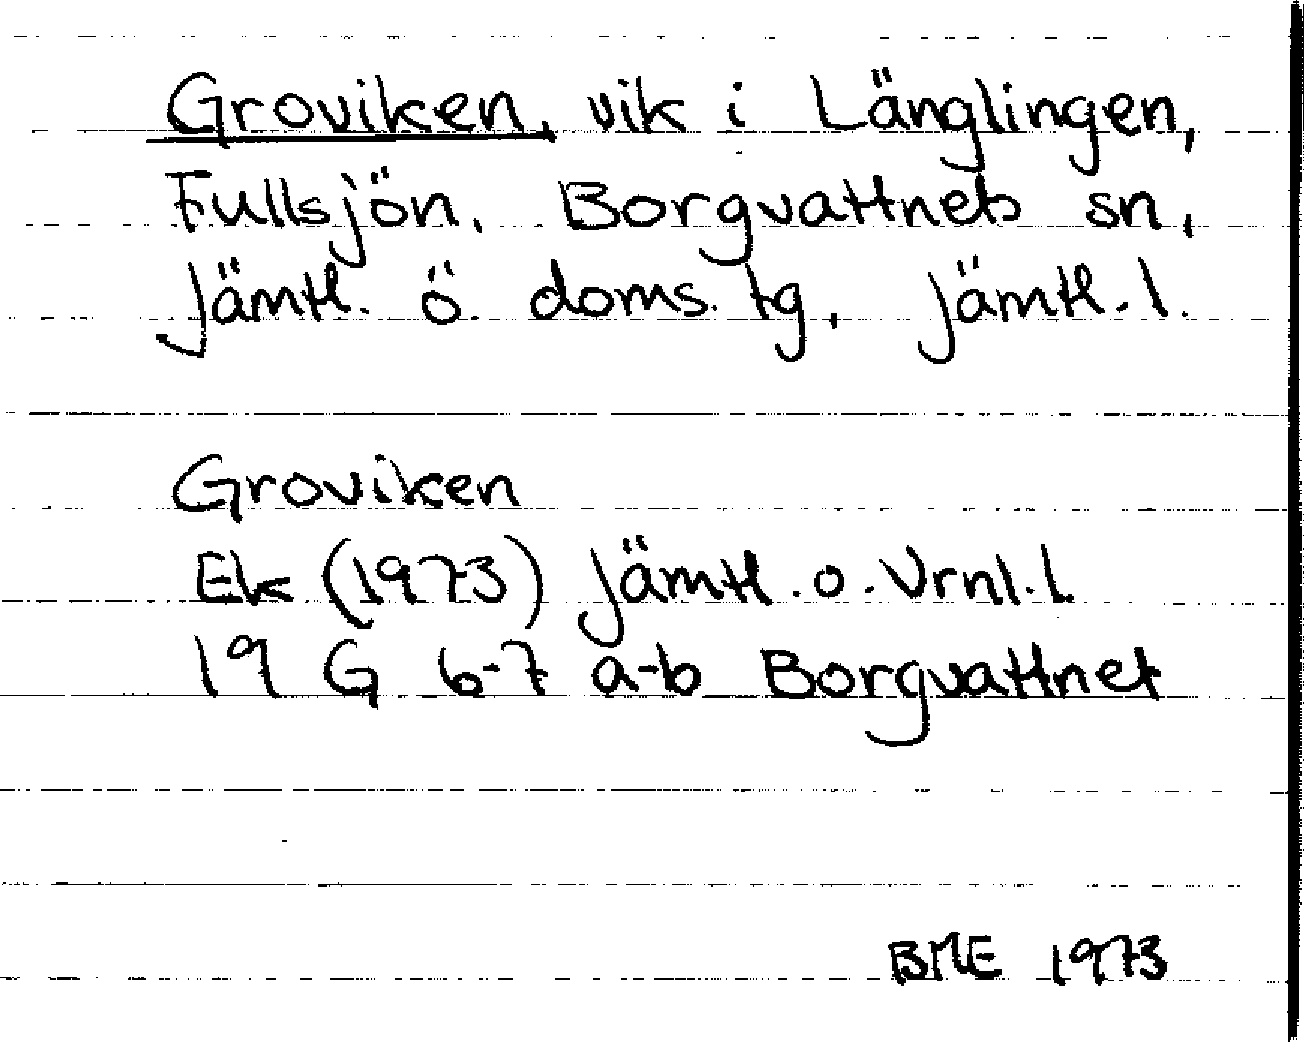 Groviken, vik i Länglingen,
Fullsjön, Borgvattnets sn,
Jämtl. ö. doms. tg, Jämtl. l.
Groviken
Ek (1973) Jämtl. o. Vrnl. l.
19 G 6-7 a-b Borgvattnet
BME 1973